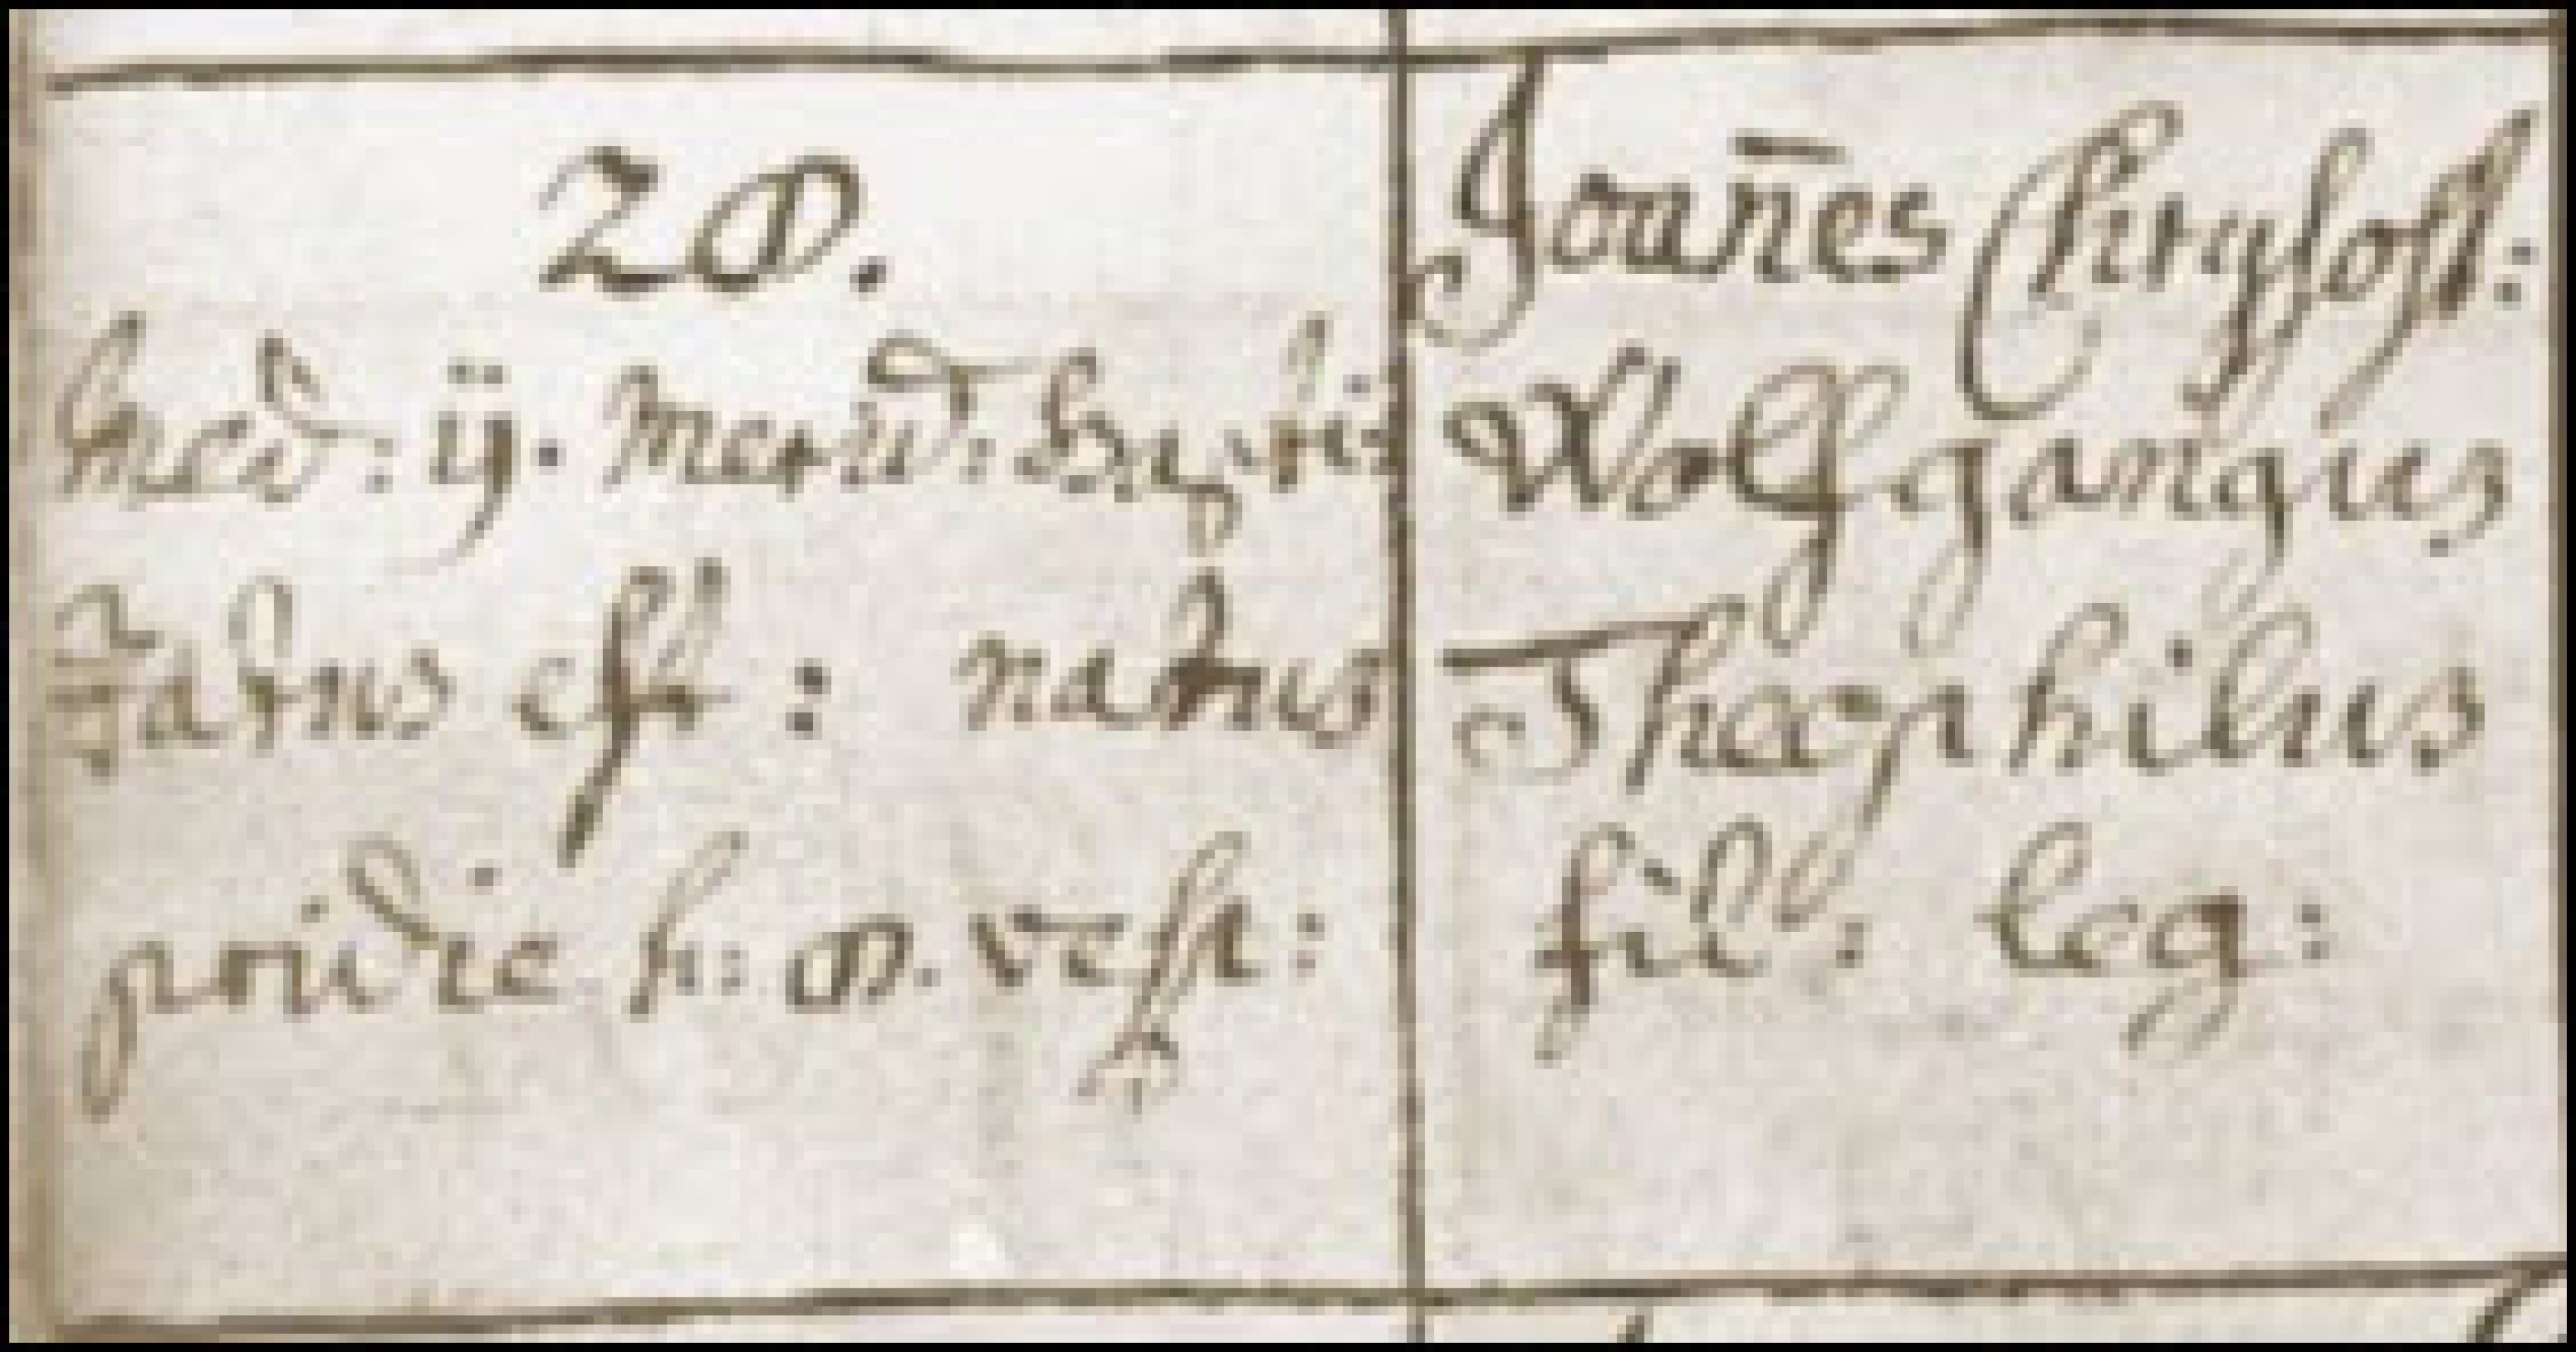 28.
med: ij. merid: Bapti:
zatus est : natus
pridie h: 8. vesp:
Joañes Chrysost:
Wolfgangus
Theophilus
fil: leg: